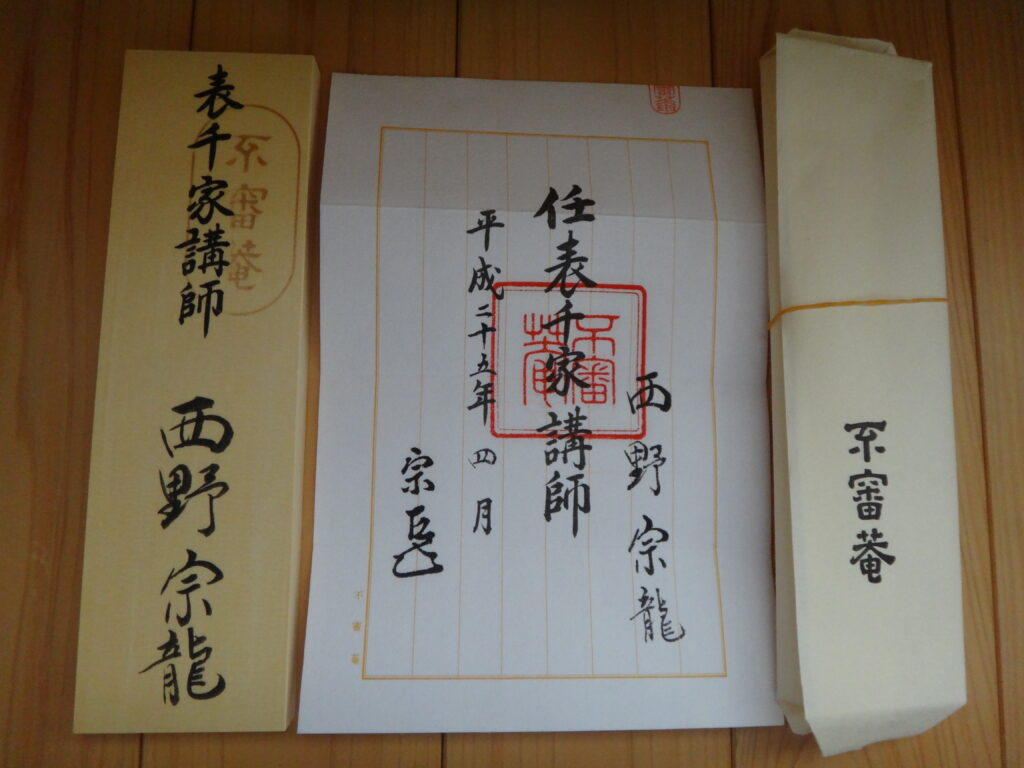 表千家講師
西野宗龍
不審菴
西野宗龍
任表千家講師
平成二十五年四月
宗
不審菴
不審菴
不審菴